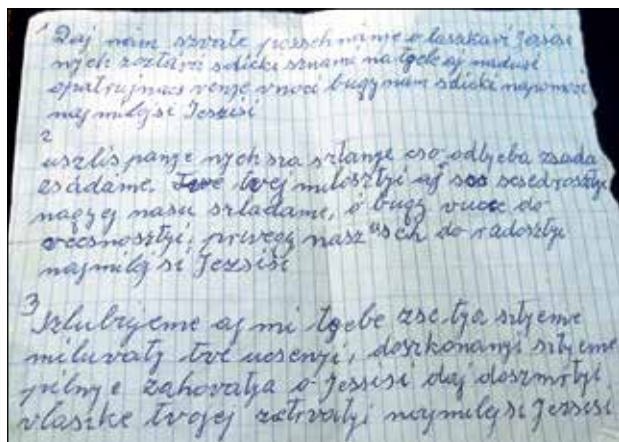 1 Daj nám szvate pozsehnánye o laszkaví Jezisi
nych zosztáva sdicki sznami na tyele aj nadusi
opatrujnasz venye vnoci bugy nam sdicki napomoci
najmilejsi Jezsisi
2
uszlis panye nych sza sztanye cso odtyeba zsada
zsádame. tvej milosztyi aj scsedrosztyi
nagyej nasu szkladame, o bugy do
vecsnosztyi, privegy nasz usech do radosztyi
najmilejsi Jezsisi
3
Szlubujeme aj mi tyebe zse tya sztyeme
miluvaty tve ucsenyi, doszkonanyi sztyeme
pilnye zahovatya o Jezsisi daj doszmrtyi
vlaszke tvojej zotrvatyi najmilejsi Jezsisi